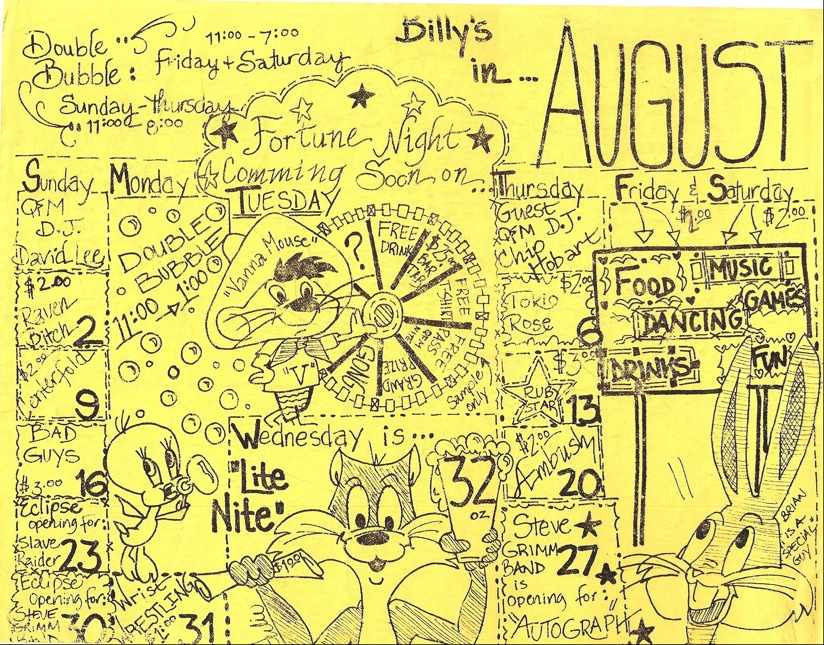 Double
Bubble:
11:00 - 7:00
Friday + Saturday
Sunday - Thursday
11:00 - 8:00
Billy's
in...
AUGUST
Fortune Night
Comming
Soon on...
Sunday
Monday
TUESDAY
Thursday
Friday & Saturday
QFM
D.J.
David Lee
$2.00
Raven
Bitch 2
$2.00
Centerfold
9
BAD
GUYS
$3.00 16
Eclipse
opening for:
Slave
Raider 23
Eclipse
Opening for:
STEVE
GRIMM
30
DOUBLE
BUBBLE
11:00 → 1:00
Wrist
WRESTLING
31
"Vanna Mouse"
"V"
?
FREE
DRINK
BAR
FREE
T-SHIRT
FREE
GRAND
PRIZE
GONG
Sample
only
Wednesday is...
"Lite
Nite"
32
oz.
Guest
QFM D.J.
Chip
Hobart
Tokio
Rose 6
RUBY
STARR
13
$2.00
Ambush
20
Steve
GRIMM
BAND 27
is
opening for:
"AUTOGRAPH"
$2.00
FOOD
MUSIC
GAMES
DANCING
DRINKS
FUN
BRIAN
IS A
SPECIAL
GUY